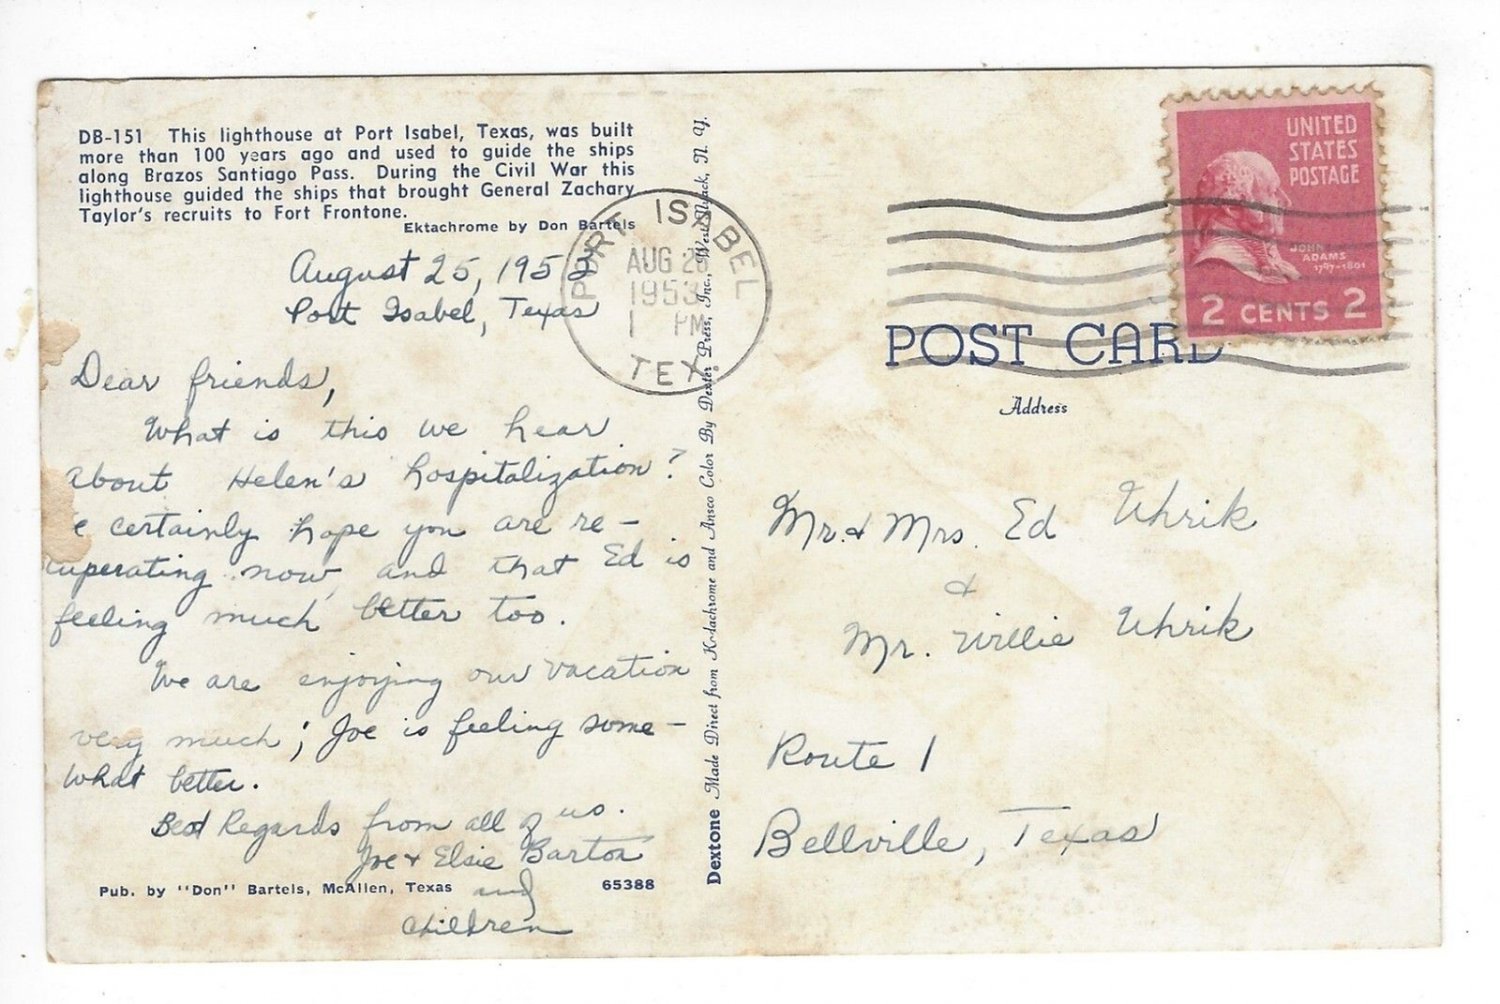 DB-151 This lighthouse at Port Isabel, Texas, was built
more than 100 years ago and used to guide the ships
along Brazos Santiago Pass. During the Civil War this
lighthouse guided the ships that brought General Zachary
Taylor's recruits to Fort Frontone.
Ektachrome by Don Bartels
August 25, 1953
Port Isabel, Texas
Dear friends,
What is this we hear
about Helen's hospitalization?
certainly hope you are re-
cuperating now, and that Ed is
feeling much better too.
We are enjoying our vacation
very much; Joe is feeling some-
what better.
Best Regards from all of us.
Joe & Elsie Barton
and
children
Pub. by "Don" Bartels, McAllen, Texas
65388
Dextone Made Direct from Kodachrome and Ansco Color By Dexter Press, Inc., West Nyack, N. Y.
PORT ISABEL
AUG
1953
1 PM
TEX.
UNITED
STATES
POSTAGE
JOHN
ADAMS
1797-1801
2 CENTS 2
POST CARD
Address
Mr. & Mrs. Ed Uhrik
&
Mr. Willie Uhrik
Route 1
Bellville, Texas